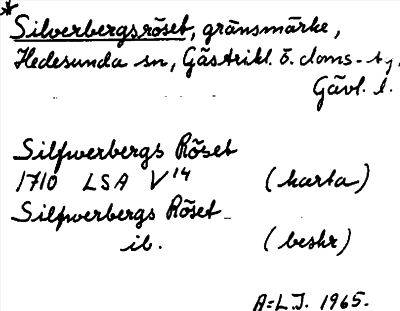 * Silverbergsröset, gränsmärke,
Hedesunda sn, Gästrikl. ö. doms-t,
Gävl. l.
Silfwerbergs Röset
1710 LSA V¹⁴ (karta)
Silfwerbergs Röset
ib. (beskr)
A=L.J. 1965.